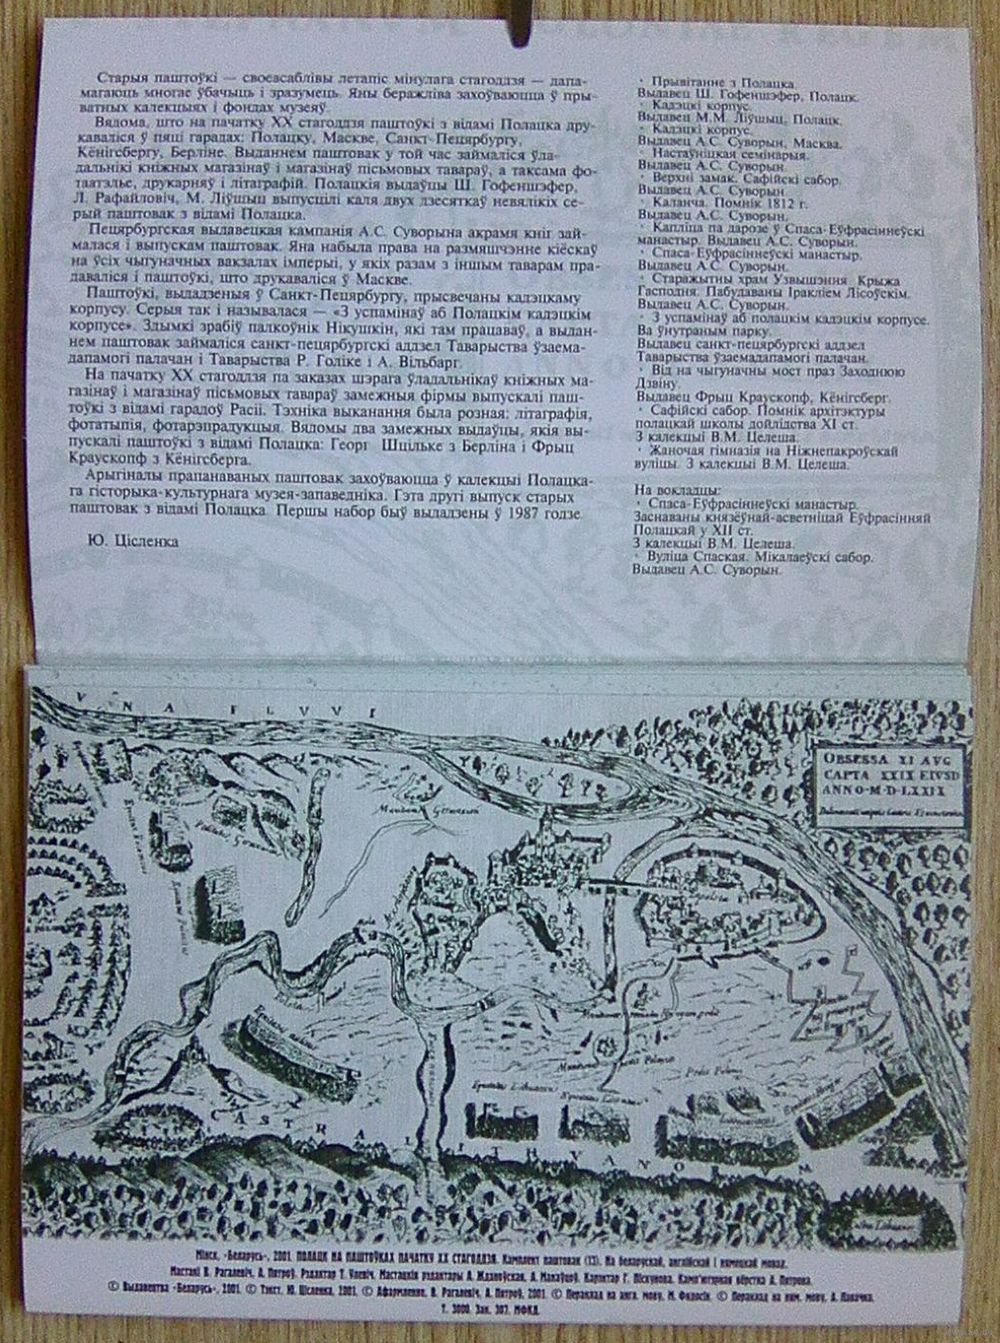 Старыя паштоўкі — своеасаблівы летапіс мінулага стагоддзя — дапа-
магаюць многае ўбачыць і зразумець. Яны беражліва захоўваюцца ў пры-
ватных калекцыях і фондах музеяў.
Вядома, што на пачатку XX стагоддзя паштоўкі з відамі Полацка дру-
каваліся ў пяці гарадах: Полацку, Маскве, Санкт-Пецярбургу,
Кёнігсбергу, Берліне. Выданнем паштовак у той час займаліся ўла-
дальнікі кніжных магазінаў і магазінаў пісьмовых тавараў, а таксама фо-
таатэлье, друкарняў і літаграфій. Полацкія выдаўцы Ш. Гофеншэфер,
Л. Рафайловіч, М. Ліўшыц выпусцілі каля двух дзесяткаў невялікіх се-
рый паштовак з відамі Полацка.
Пецярбургская выдавецкая кампанія А.С. Суворына акрамя кніг зай-
малася і выпускам паштовак. Яна набыла права на размяшчэнне кіёскаў
на ўсіх чыгуначных вакзалах імперыі, у якіх разам з іншым таварам пра-
даваліся і паштоўкі, што друкаваліся ў Маскве.
Паштоўкі, выдадзеныя ў Санкт-Пецярбургу, прысвечаны кадэцкаму
корпусу. Серыя так і называлася — «З успамінаў аб Полацкім кадэцкім
корпусе». Здымкі зрабіў палкоўнік Нікушкін, які там працаваў, а выдан-
нем паштовак займаліся санкт-пецярбургскі аддзел Таварыства ўзаема-
дапамогі палачан і Таварыства Р. Голіке і А. Вільбарг.
На пачатку XX стагоддзя па заказах шэрага ўладальнікаў кніжных ма-
газінаў і магазінаў пісьмовых тавараў замежныя фірмы выпускалі паш-
тоўкі з відамі гарадоў Расіі. Тэхніка выканання была розная: літаграфія,
фотатыпія, фотарэпрадукцыя. Вядомы два замежных выдаўцы, якія вы-
пускалі паштоўкі з відамі Полацка: Георг Шцільке з Берліна і Фрыц
Краускопф з Кёнігсберга.
Арыгіналы прапанаваных паштовак захоўваюцца ў калекцыі Полацка-
га гісторыка-культурнага музея-запаведніка. Гэта другі выпуск старых
паштовак з відамі Полацка. Першы набор быў выдадзены ў 1987 годзе.
Ю. Цісленка
· Прывітанне з Полацка.
Выдавец Ш. Гофеншэфер, Полацк.
· Кадэцкі корпус.
Выдавец М.М. Ліўшыц, Полацк.
· Кадэцкі корпус.
Выдавец А.С. Суворын, Масква.
· Настаўніцкая семінарыя.
Выдавец А.С. Суворын.
· Верхні замак. Сафійскі сабор.
Выдавец А.С. Суворын.
· Каланча. Помнік 1812 г.
Выдавец А.С. Суворын.
· Капліца па дарозе ў Спаса-Еўфрасіннеўскі
манастыр. Выдавец А.С. Суворын.
· Спаса-Еўфрасіннеўскі манастыр.
Выдавец А.С. Суворын.
· Старажытны храм Узвышэння Крыжа
Гасподня. Пабудаваны Іракліем Лісоўскім.
Выдавец А.С. Суворын.
· З успамінаў аб полацкім кадэцкім корпусе.
Ва ўнутраным парку.
Выдавец санкт-пецярбургскі аддзел
Таварыства ўзаемадапамогі палачан.
· Від на чыгуначны мост праз Заходнюю
Дзвіну.
Выдавец Фрыц Краускопф, Кёнігсберг.
· Сафійскі сабор. Помнік архітэктуры
полацкай школы дойлідства XI ст.
З калекцыі В.М. Целеша.
· Жаночая гімназія на Ніжнепакроўскай
вуліцы. З калекцыі В.М. Целеша.
На вокладцы:
· Спаса-Еўфрасіннеўскі манастыр.
Заснаваны князёўнай-асветніцай Еўфрасінняй
Полацкай у XII ст.
З калекцыі В.М. Целеша.
· Вуліца Спаская. Мікалаеўскі сабор.
Выдавец А.С. Суворын.
OBSESSA XI AVG
CAPTA XXIX EIVSD
ANNO·M·D·LXXIX
CASTRA LITHVANORVM
Мінск, «Беларусь», 2001. ПОЛАЦК НА ПАШТОЎКАХ ПАЧАТКУ XX СТАГОДДЗЯ. Камплект паштовак (13). На беларускай, англійскай і нямецкай мовах.
Мастакі В. Рагалевіч, А. Пятроў. Рэдактар Т. Улевіч. Мастацкія рэдактары А. Ждановіская, А. Макаўцоў. Карэктар Г. Піскунова. Камп'ютэрная вёрстка А. Пятрова.
© Выдавецтва «Беларусь», 2001. © Тэкст. Ю. Цісленка, 2001. © Афармленне. В. Рагалевіч, А. Пятроў, 2001. © Пераклад на англ. мову. М. Філосік. © Пераклад на ням. мову. А.
Т. 3000. Зак. 307. МФКД.